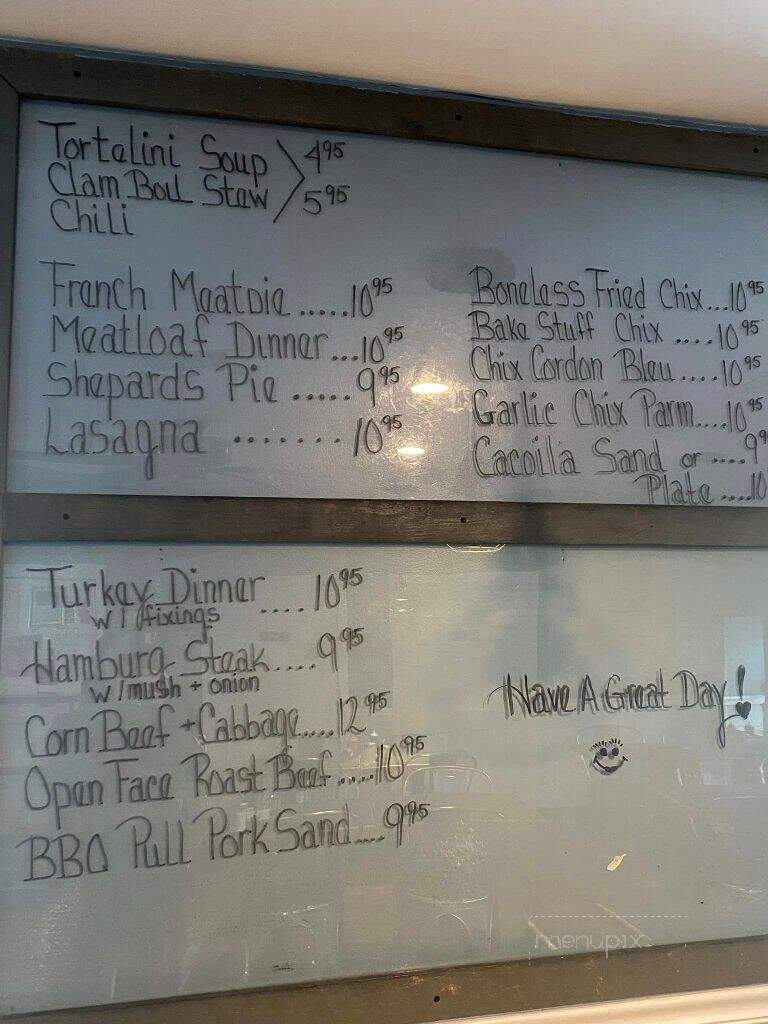 Tortelini Soup 4 95
Clam Boil Stew 5 95
Chili
French Meatpie.....10 95
Meatloaf Dinner...10 95
Shepards Pie.....9 95
Lasagna.......10 95
Boneless Fried Chix...10 95
Bake Stuff Chix....10 95
Chix Cordon Bleu....10 95
Garlic Chix Parm....10 95
Cacoilla Sand or....9 9
Plate....10
Turkey Dinner....10 95
w/fixings
Hamburg Steak....9 95
w/mush + onion
Corn Beef + Cabbage....12 95
Open Face Roast Beef.....10 95
BBQ Pull Pork Sand....9 95
Have A Great Day!
menupix